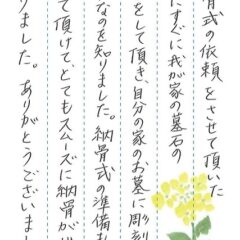 骨式の依頼をさせて頂いた
にすぐに我が家の墓石の
をして頂き、自分の家のお墓に彫刻
なのを知りました。納骨式の準備も
て頂けて、とてもスムーズに納骨が
りました。ありがとうございまし